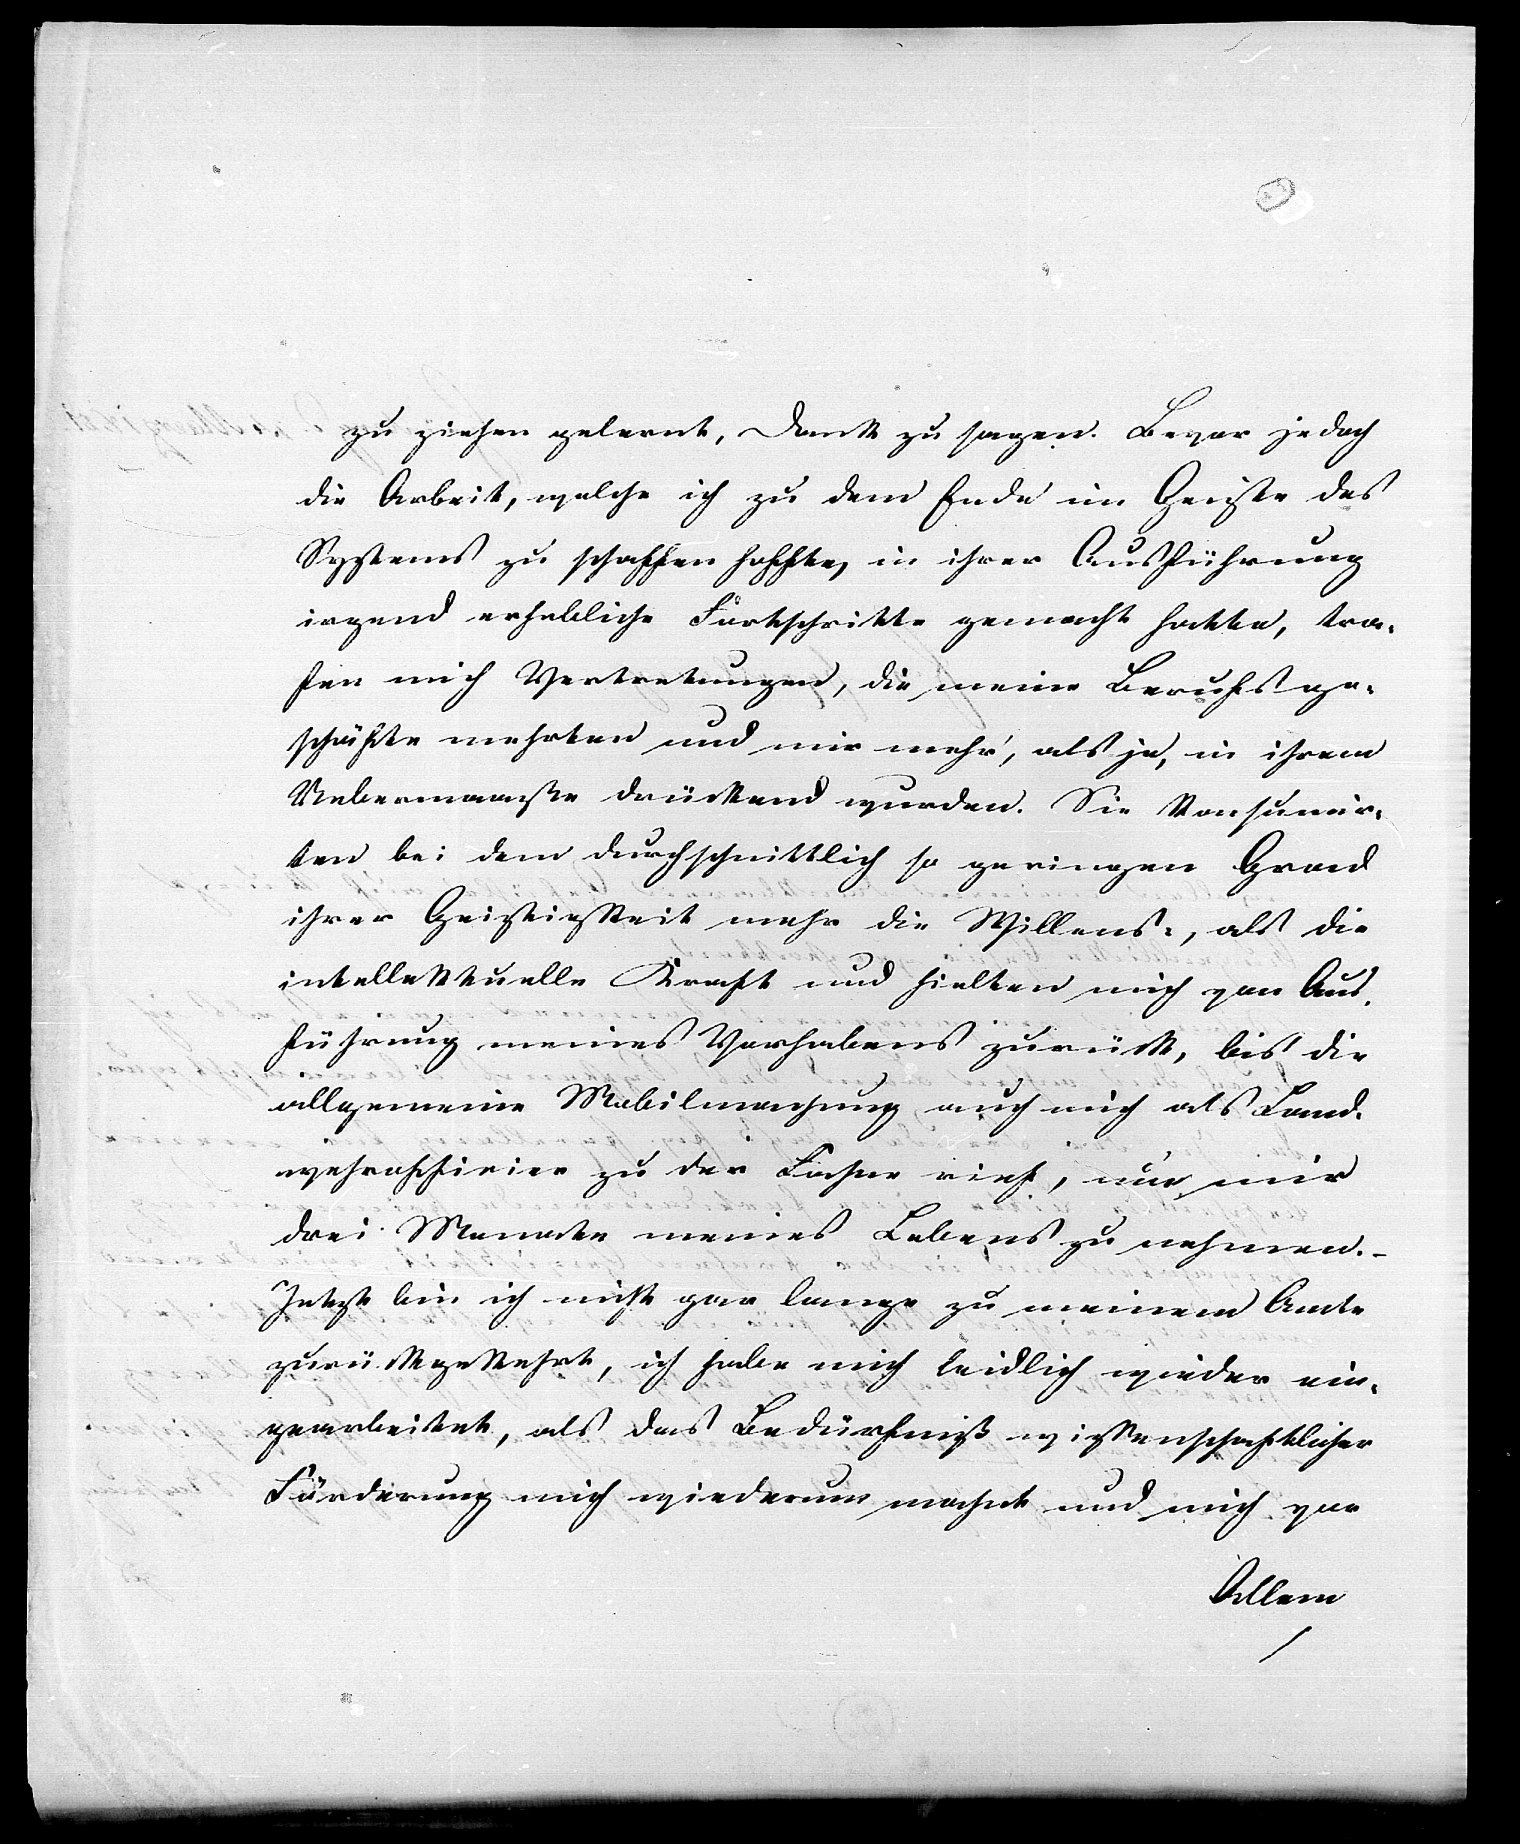 zu ziehen gelernt, Dank zu sagen. Bevor jedoch
die Arbeit, welche ich zu dem Ende im Geiste des
Systems zu schaffen hoffte, in ihrer Ausführung
irgend erhebliche Fortschritte gemacht hatte, tra-
fen mich Vertretungen, die meine Berufsge-
schäfte mehrten und mir mehr, als je, in ihrem
Uebermaaße drückend wurden. Sie konsumir-
ten bei dem durchschnittlich so geringen Grad
ihrer Geistigkeit mehr die Willens-, als die
intellektuelle Kraft und hielten mich von Aus-
führung meines Vorhabens zurück, bis die
allgemeine Mobilmachung auch mich als Land-
wehroffizier zu der Fahne rief, um mir
drei Monate meines Lebens zu nehmen. -
Jetzt bin ich nicht gar lange zu meinem Amte
zurückgekehrt, ich habe mich leidlich wieder ein-
gearbeitet, als das Bedürfniß wissenschaftlicher
Förderung mich wiederum mahnt und mich vor
Allem